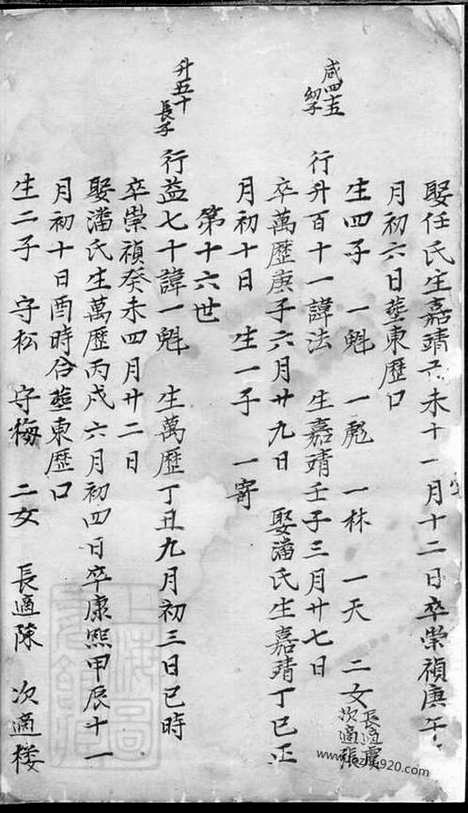 娶任氏生嘉靖己未十一月十二日卒崇禎庚午
月初六日塟東歷口
生四子 一魁 一彪 一林 一天 二女 長適 次適張
咸四十五
幼子
行升百十一諱法 生嘉靖壬子三月廿七日
卒萬歷庚子六月廿九日 娶潘氏生嘉靖丁巳正
月初十日 生一子 一寄
第十六世
升五十
長子
行益七十諱一魁 生萬歷丁丑九月初三日巳時
卒崇禎癸未四月廿二日
娶潘氏生萬歷丙戌六月初四日卒康熙甲辰十一
月初十日酉時合塟東歷口
生二子 守松 守梅 二女 長適陳 次適楼